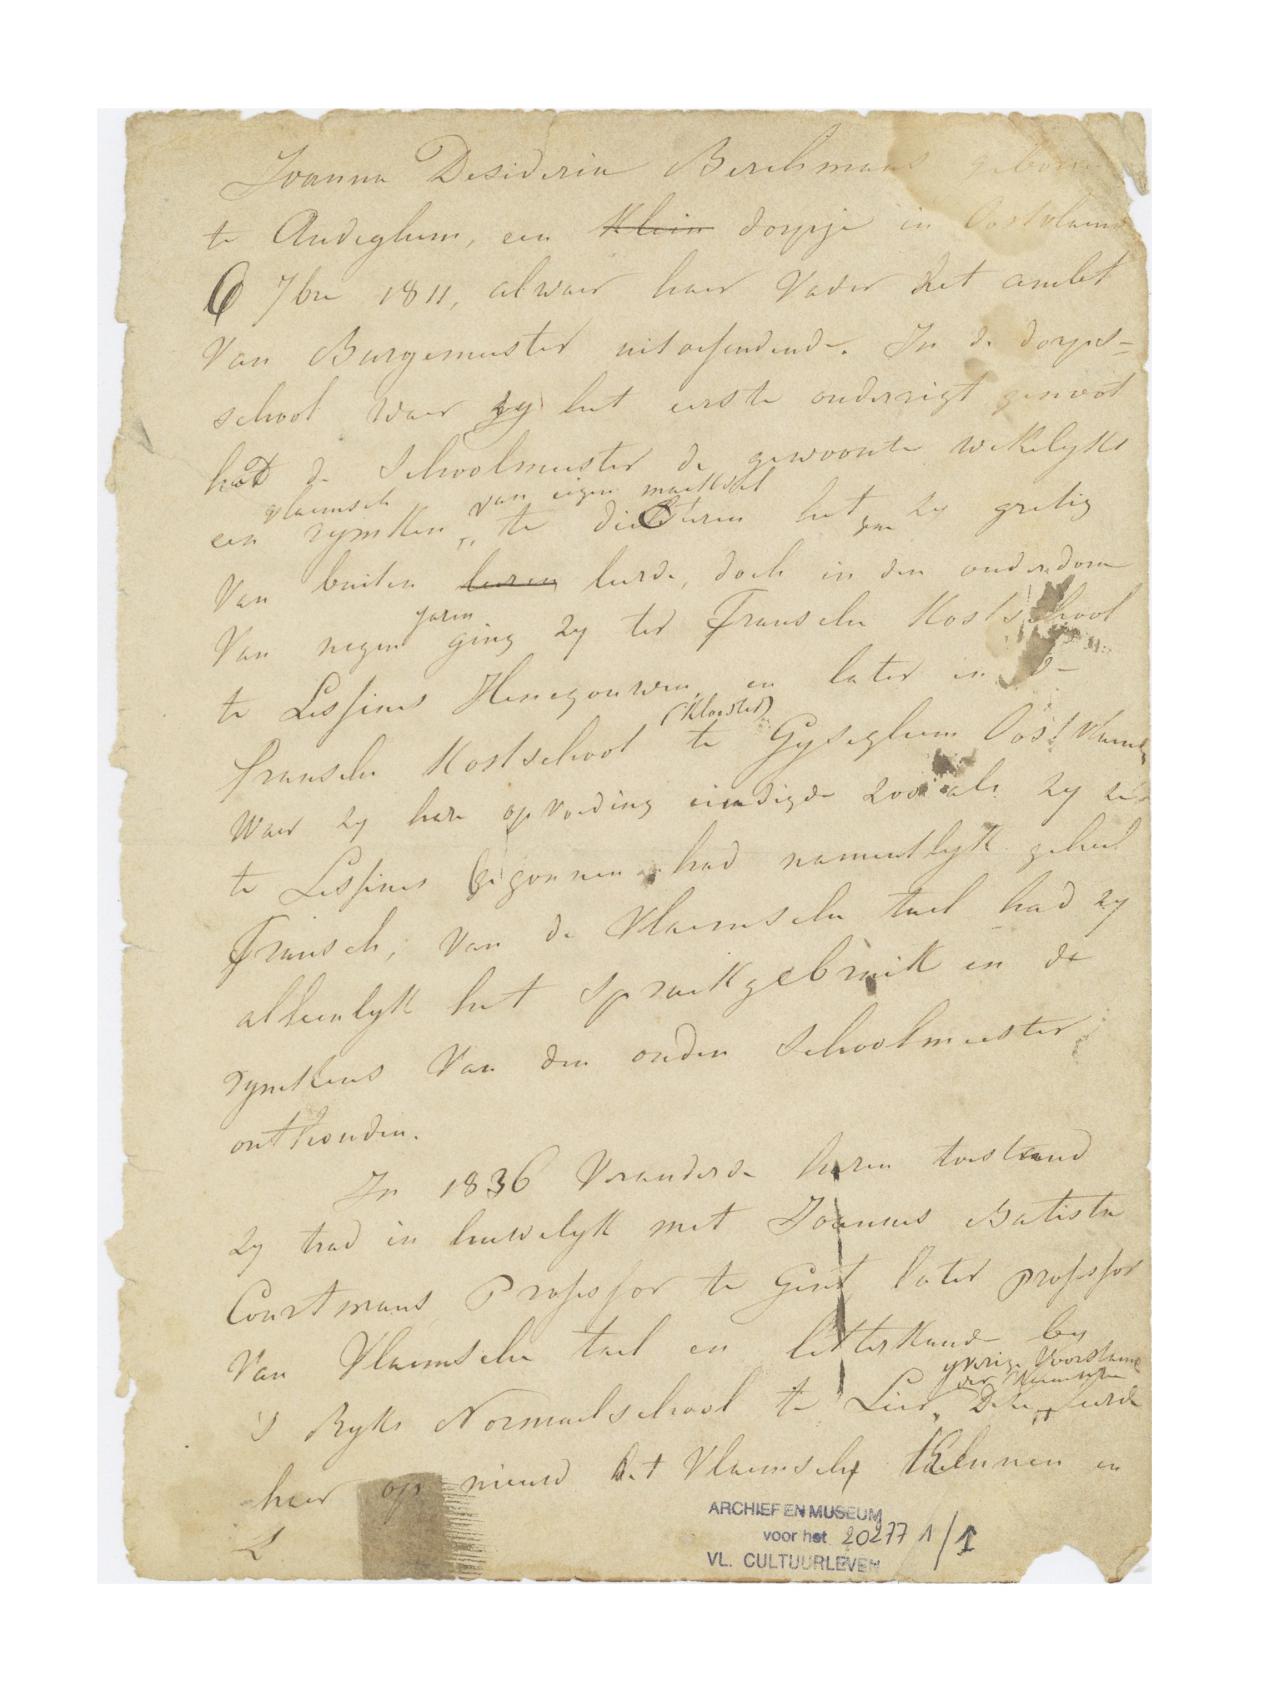 Joanna Desideria Berchmans geboren
te Audeghem, een Klein dorpje in Oostvlaend
6 7bre 1811, alwaer haer Vader het ambt
Van Burgemeester uitoefendende. In de dorps=
school waer zy het eerste onderrigt genoot
had de Schoolmeester de gewoonte wekelyks
vlaemsch van eigen maeksel
een rymken te dicteren het zy gretig
Van buiten leren leerde, doch in den ouderdom
jaren
Van negen ging zy ter Fransche Kostschool
te Lessines Henegouwen, en later in de
(Klooster)
fransche Kostschool te Gyseghem Oost Vlaend
Waer zy hare opvoeding eindigde zoo als zy ze
te Lessines begonnen had namentlyk geheel
Fransch, Van de Vlaemsche tael had zy
alleenlyk het spraekgebruik en de
rymkens Van den ouden Schoolmeester
onthouden.
In 1836 Veranderde haren toestand
zy trad in huwelyk met Joannes Batista
Courtmans Professor te Gent later professor
Van Vlaemsche tael en letterkunde by
yverige Voorstaender
's Ryks Normaelschool te Lier, Deze leerde
haer op nieuw het Vlaemsche Kennen en
ARCHIEF EN MUSEUM
voor het 20277 1/1
VL. CULTUURLEVEN